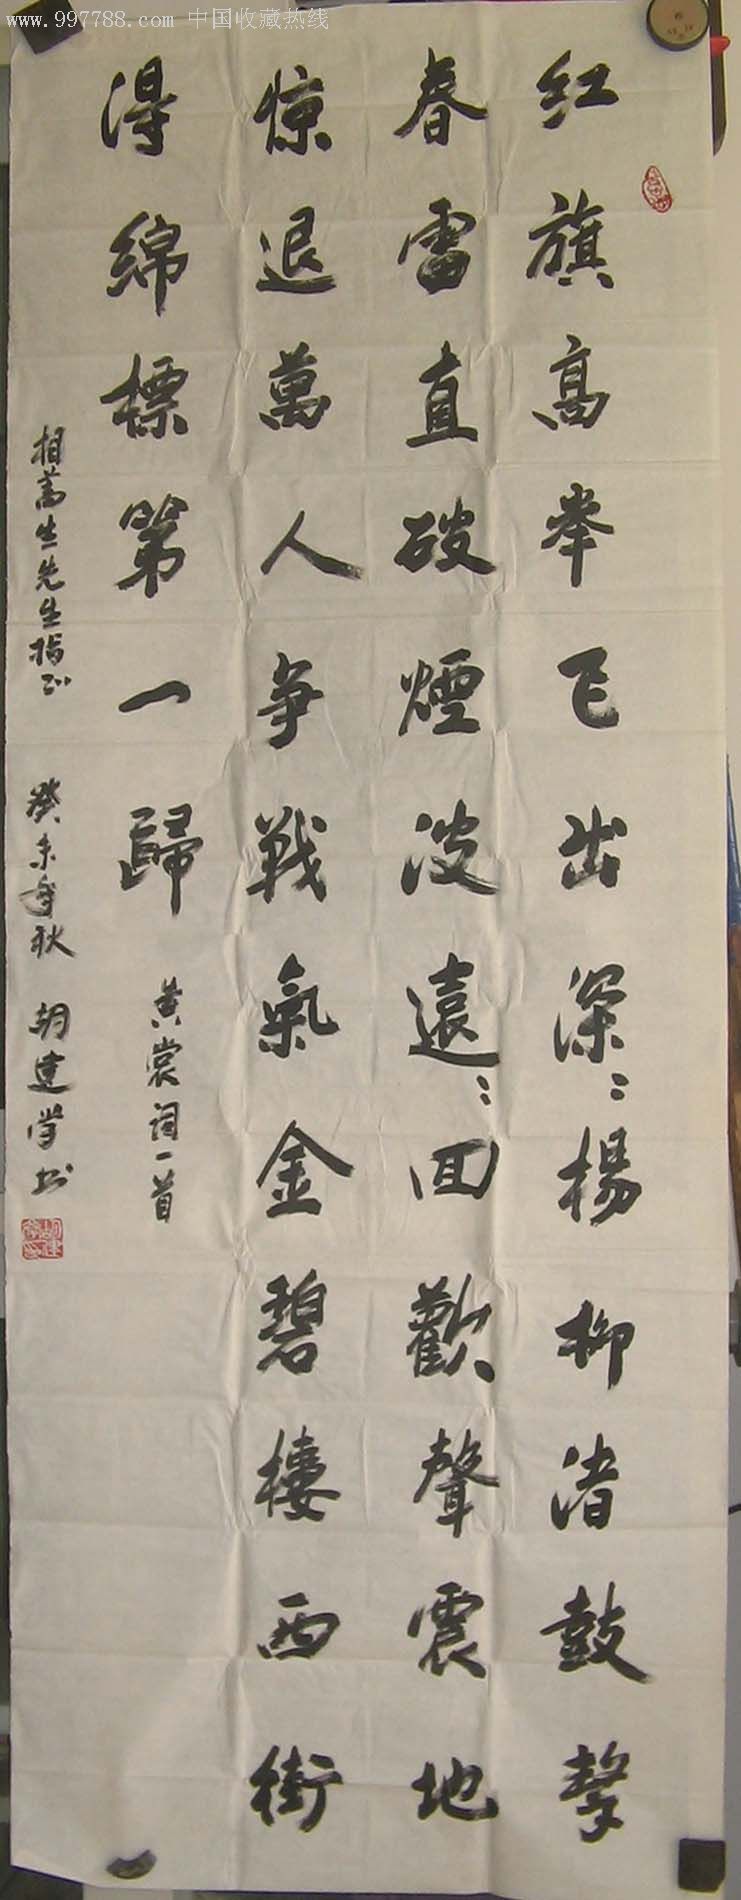 www.997788.com 中国收藏热线
红旗高举飞出深：杨柳渚鼓击
春雷直破烟波远：回欢声震地
惊退万人争战气金碧楼西街
得绵标第一归
黄裳词一首
相万生先生指正
癸未年秋 胡建学书